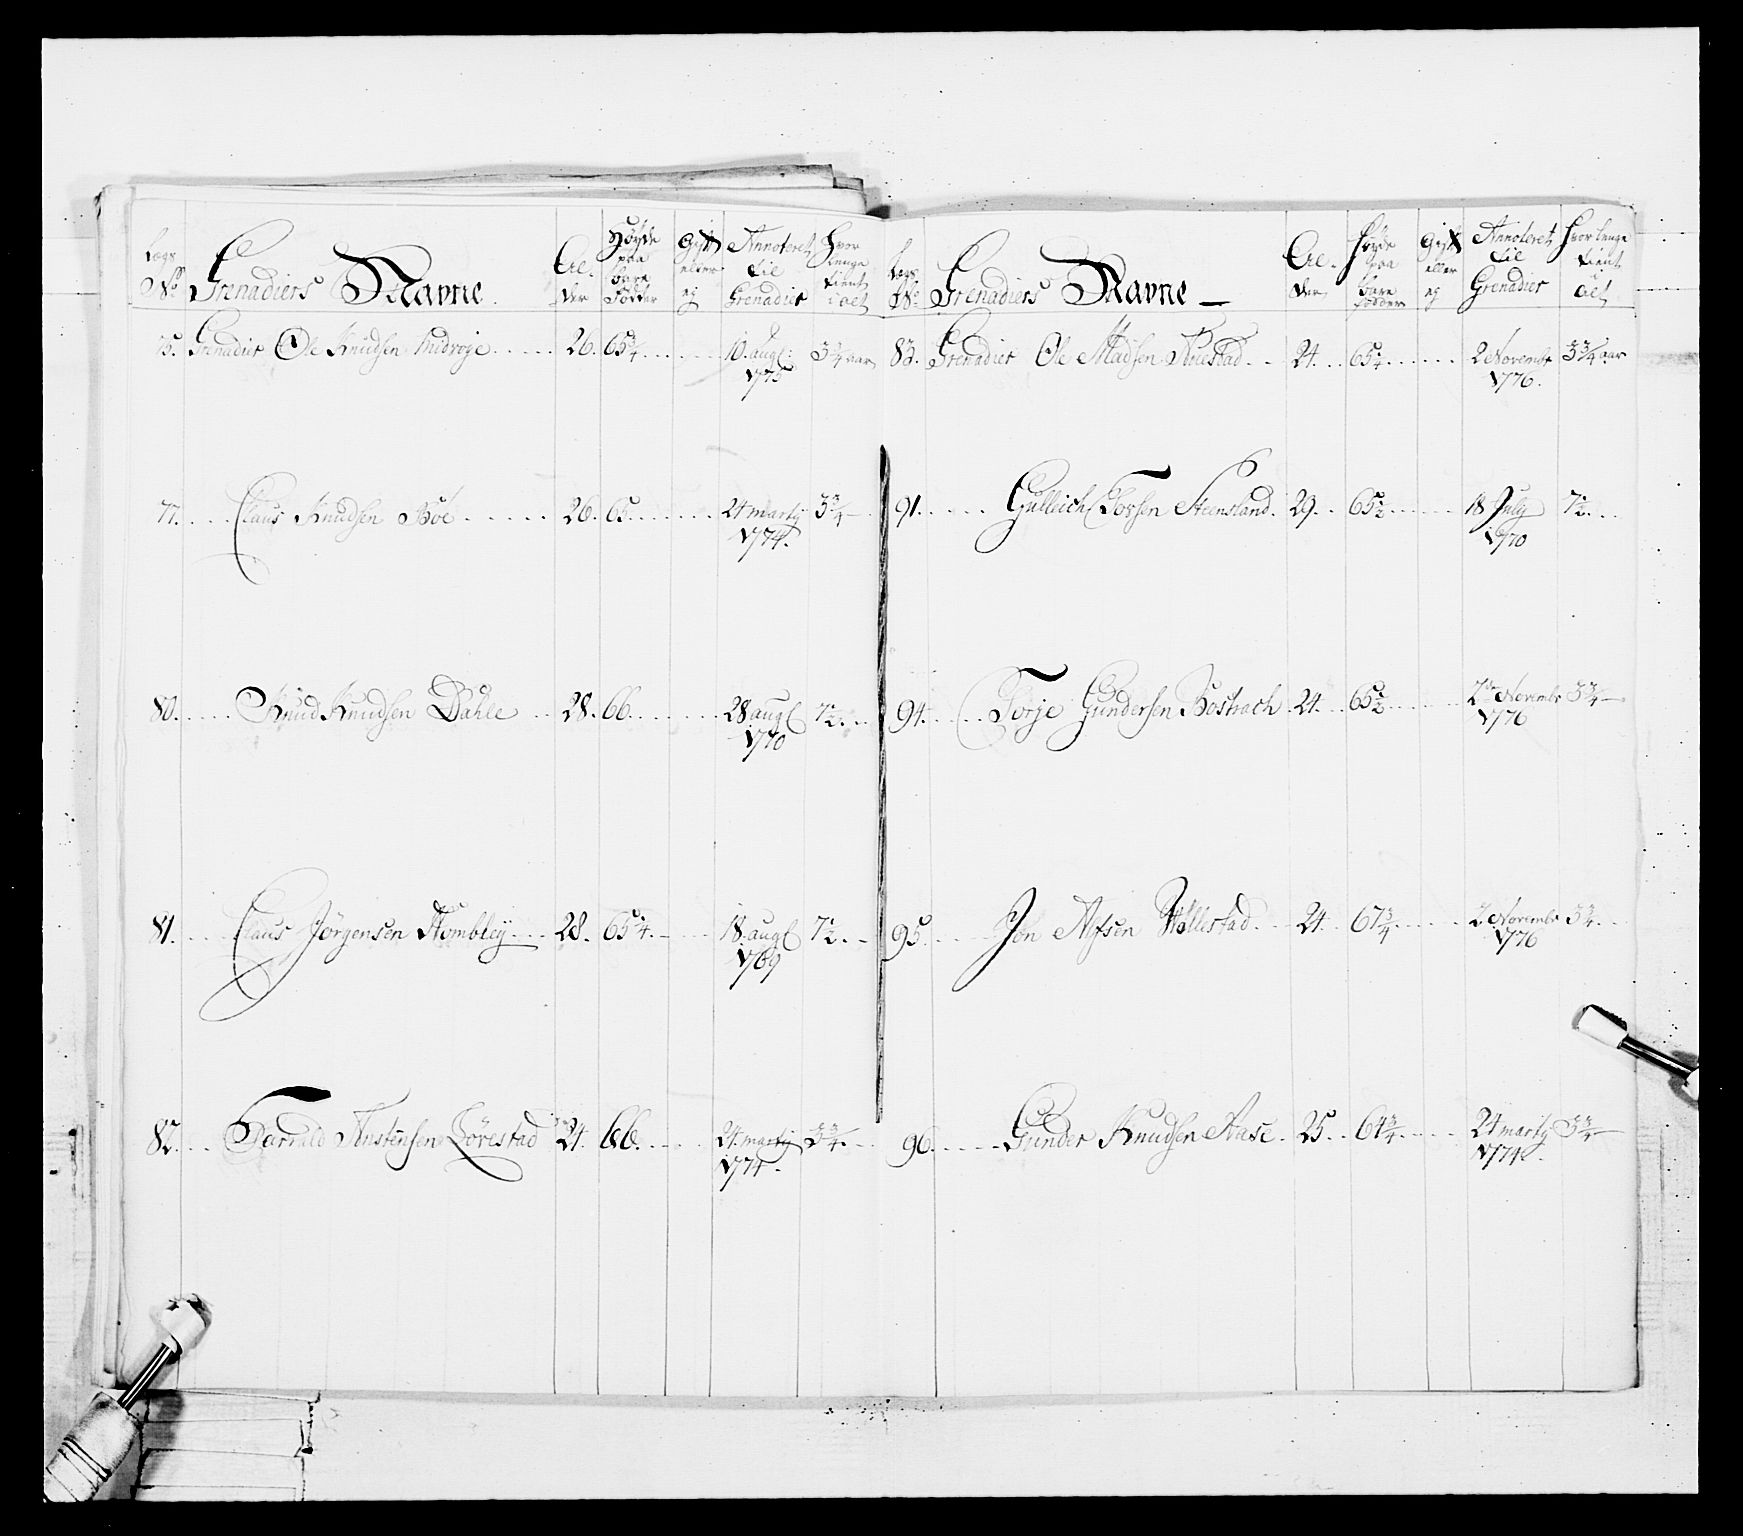 Lægs No. Grenadiers Navne. Al. der Høyde paa bare Fødder Gift eller ej Annoteret til Grenadier Hvor lenge tient i alt
75. Grenadier Ole Knudsen Midvoje 26. 65 3/4 10. augt: 1775 3 3/4 aar
77. Claus Knudsen Böe 26. 65 24 martij 1774. 3 3/4
80. Knud Knudsen Dahle 28. 66. 28 augt 1770 7 1/2
81. Claus Jörgensen Stombley 28. 65 1/4 18. augt 1769 7 1/2
82. Tarrald Anstensen Lörestad 24. 66. 24. martij 1774. 3 3/4
Lægs No. Grenadiers Navne Al. der Høyde paa bare fødder Gift eller ej Annoteret til Grenadier Hvor lenge tient i alt
83. Grenadier Ole Madsen 24 65 1/4 2 Novembr 1776. 3 3/4 aar
91. Gulleich Torsen Steensland. 29. 65 1/2 18 July 1770 7 1/2
94. Torje Gundersen Bostrach 24. 65 1/2 2de Novembr 1776 3 3/4
95. Jon Alfsen Hellestad 24. 67 3/4 2 Novembr 1776 3 3/4
96. Gunder Knudsen Aase 25 64 3/4 24 martij 1774. 3 3/4